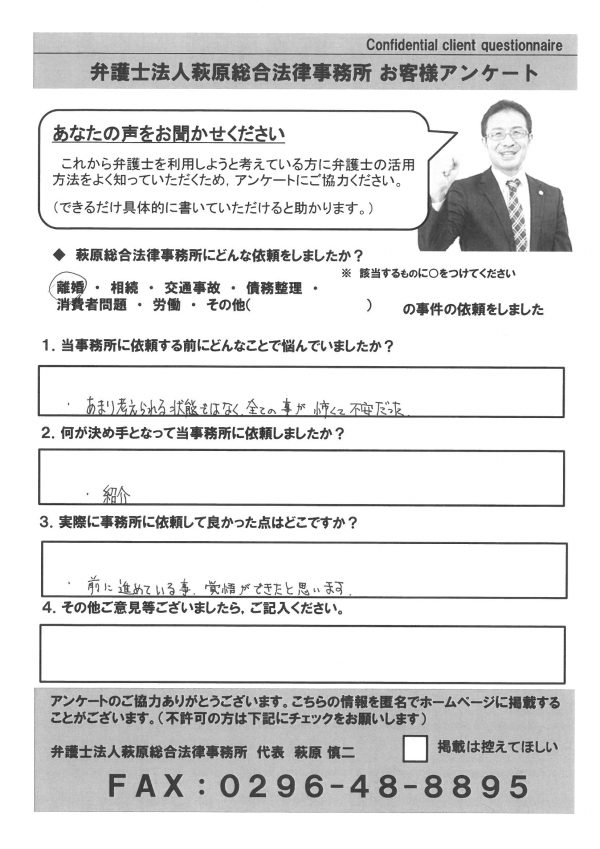 Confidential client questionnaire
弁護士法人萩原総合法律事務所 お客様アンケート
あなたの声をお聞かせください
これから弁護士を利用しようと考えている方に弁護士の活用
方法をよく知っていただくため，アンケートにご協力ください。
（できるだけ具体的に書いていただけると助かります。）
◆ 萩原総合法律事務所にどんな依頼をしましたか？
※ 該当するものに○をつけてください
離婚 ・ 相続 ・ 交通事故 ・ 債務整理 ・
消費者問題 ・ 労働 ・ その他( ) の事件の依頼をしました
1. 当事務所に依頼する前にどんなことで悩んでいましたか？
・ あまり考えられる状態ではなく、全ての事が怖くて不安だった。
2. 何が決め手となって当事務所に依頼しましたか？
・ 紹介
3. 実際に事務所に依頼して良かった点はどこですか？
・ 前に進めている事、覚悟ができたと思います。
4. その他ご意見等ございましたら，ご記入ください。
アンケートのご協力ありがとうございます。こちらの情報を匿名でホームページに掲載する
ことがございます。（不許可の方は下記にチェックをお願いします）
弁護士法人萩原総合法律事務所 代表 萩原 慎二 掲載は控えてほしい
FAX：0296-48-8895